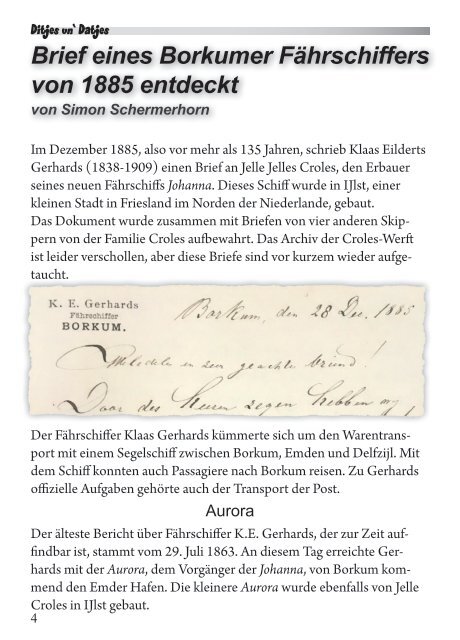 Ditjes un' Datjes
Brief eines Borkumer Fährschiffers
von 1885 entdeckt
von Simon Schermerhorn
Im Dezember 1885, also vor mehr als 135 Jahren, schrieb Klaas Eilderts
Gerhards (1838-1909) einen Brief an Jelle Jelles Croles, den Erbauer
seines neuen Fährschiffs Johanna. Dieses Schiff wurde in IJlst, einer
kleinen Stadt in Friesland im Norden der Niederlande, gebaut.
Das Dokument wurde zusammen mit Briefen von vier anderen Skip-
pern von der Familie Croles aufbewahrt. Das Archiv der Croles-Werft
ist leider verschollen, aber diese Briefe sind vor kurzem wieder aufge-
taucht.
K. E. Gerhards
Fährschiffer
BORKUM.
Borkum, den 28 Dec. 1885
en zeer geachte vriend!
Door des Heeren zegen hebben wy
Der Fährschiffer Klaas Gerhards kümmerte sich um den Warentrans-
port mit einem Segelschiff zwischen Borkum, Emden und Delfzijl. Mit
dem Schiff konnten auch Passagiere nach Borkum reisen. Zu Gerhards
offizielle Aufgaben gehörte auch der Transport der Post.
Aurora
Der älteste Bericht über Fährschiffer K.E. Gerhards, der zur Zeit auf-
findbar ist, stammt vom 29. Juli 1863. An diesem Tag erreichte Ger-
hards mit der Aurora, dem Vorgänger der Johanna, von Borkum kom-
mend den Emder Hafen. Die kleinere Aurora wurde ebenfalls von Jelle
Croles in IJlst gebaut.
4